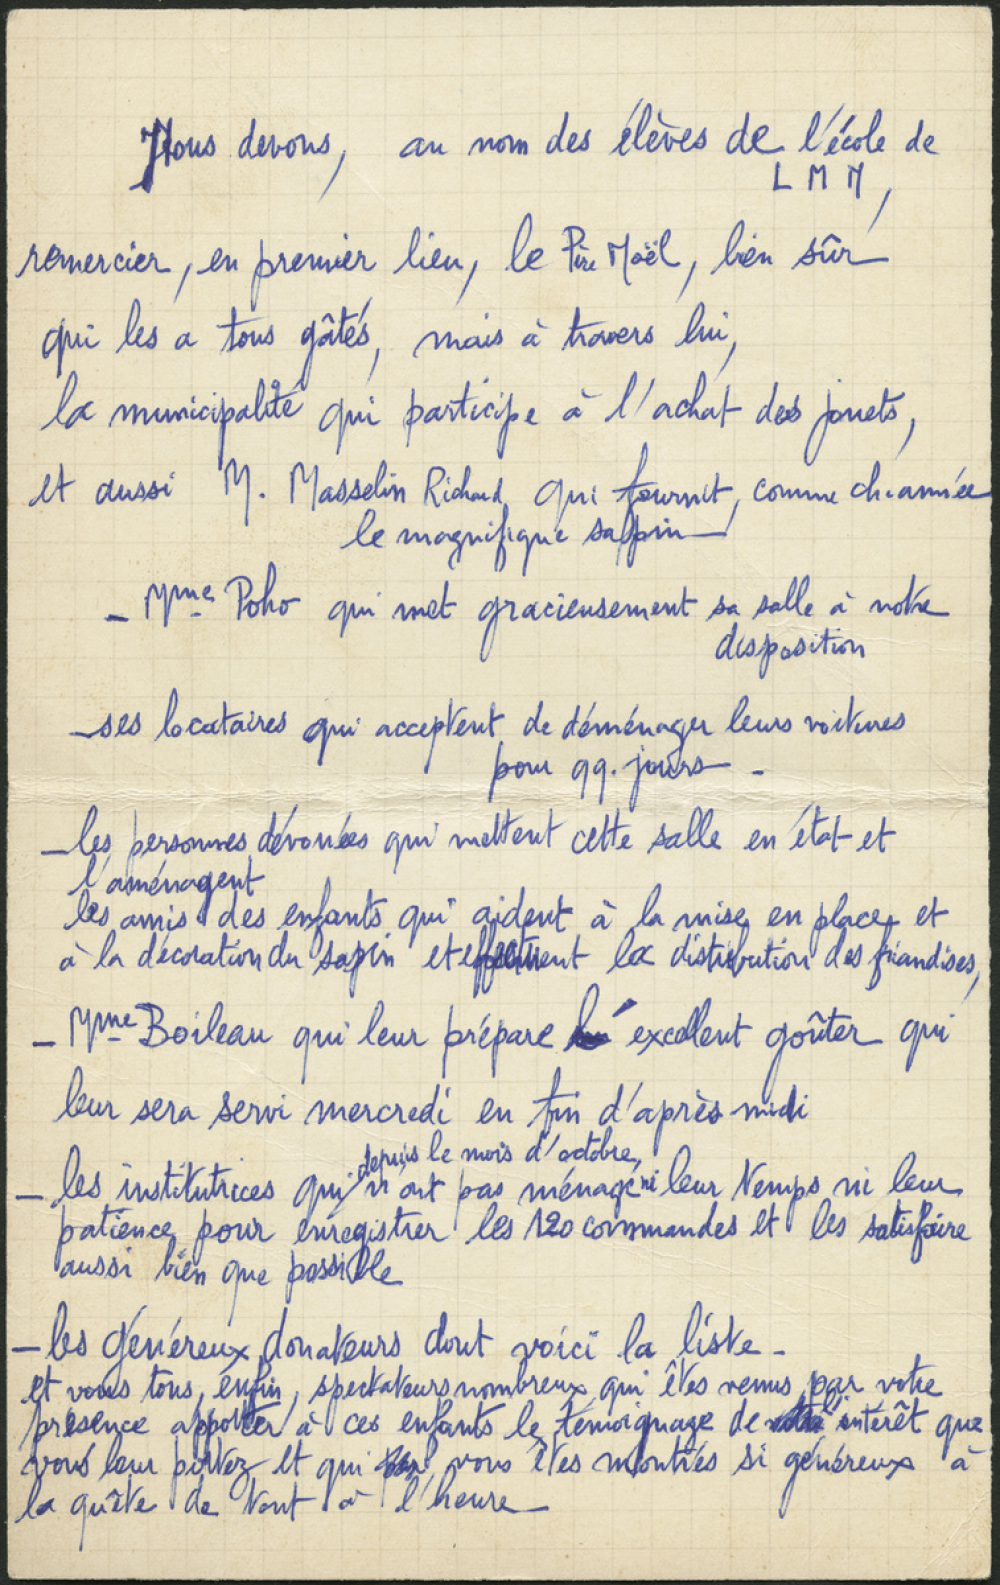 Nous devons, au nom des élèves de l'école de
L M M,
remercier, en premier lieu, le Père Noël, bien sûr
qui les a tous gâtés, mais à travers lui,
la municipalité qui participe à l'achat des jouets,
et aussi M. Masselin Richard qui fournit, comme ch. année
le magnifique sapin
- Mme Poho qui met gracieusement sa salle à notre
disposition
- ses locataires qui acceptent de déménager leurs voitures
pour qq. jours -
- les personnes dévouées qui mettent cette salle en état et
l'aménagent
les amis des enfants qui aident à la mise en place et
à la décoration du sapin et effectuent la distribution des friandises,
- Mme Boileau qui leur prépare excellent goûter qui
leur sera servi mercredi en fin d'après midi
depuis le mois d'octobre,
- les institutrices qui n'ont pas ménagé ni leur temps ni leur
patience pour enregistrer les 120 commandes et les satisfaire
aussi bien que possible
- les généreux donateurs dont voici la liste -
et vous tous, enfin, spectateurs nombreux qui êtes venus par votre
présence apporter à ces enfants le témoignage de intérêt que
vous leur portez et qui vous êtes montrés si généreux à
la quête de tout à l'heure -